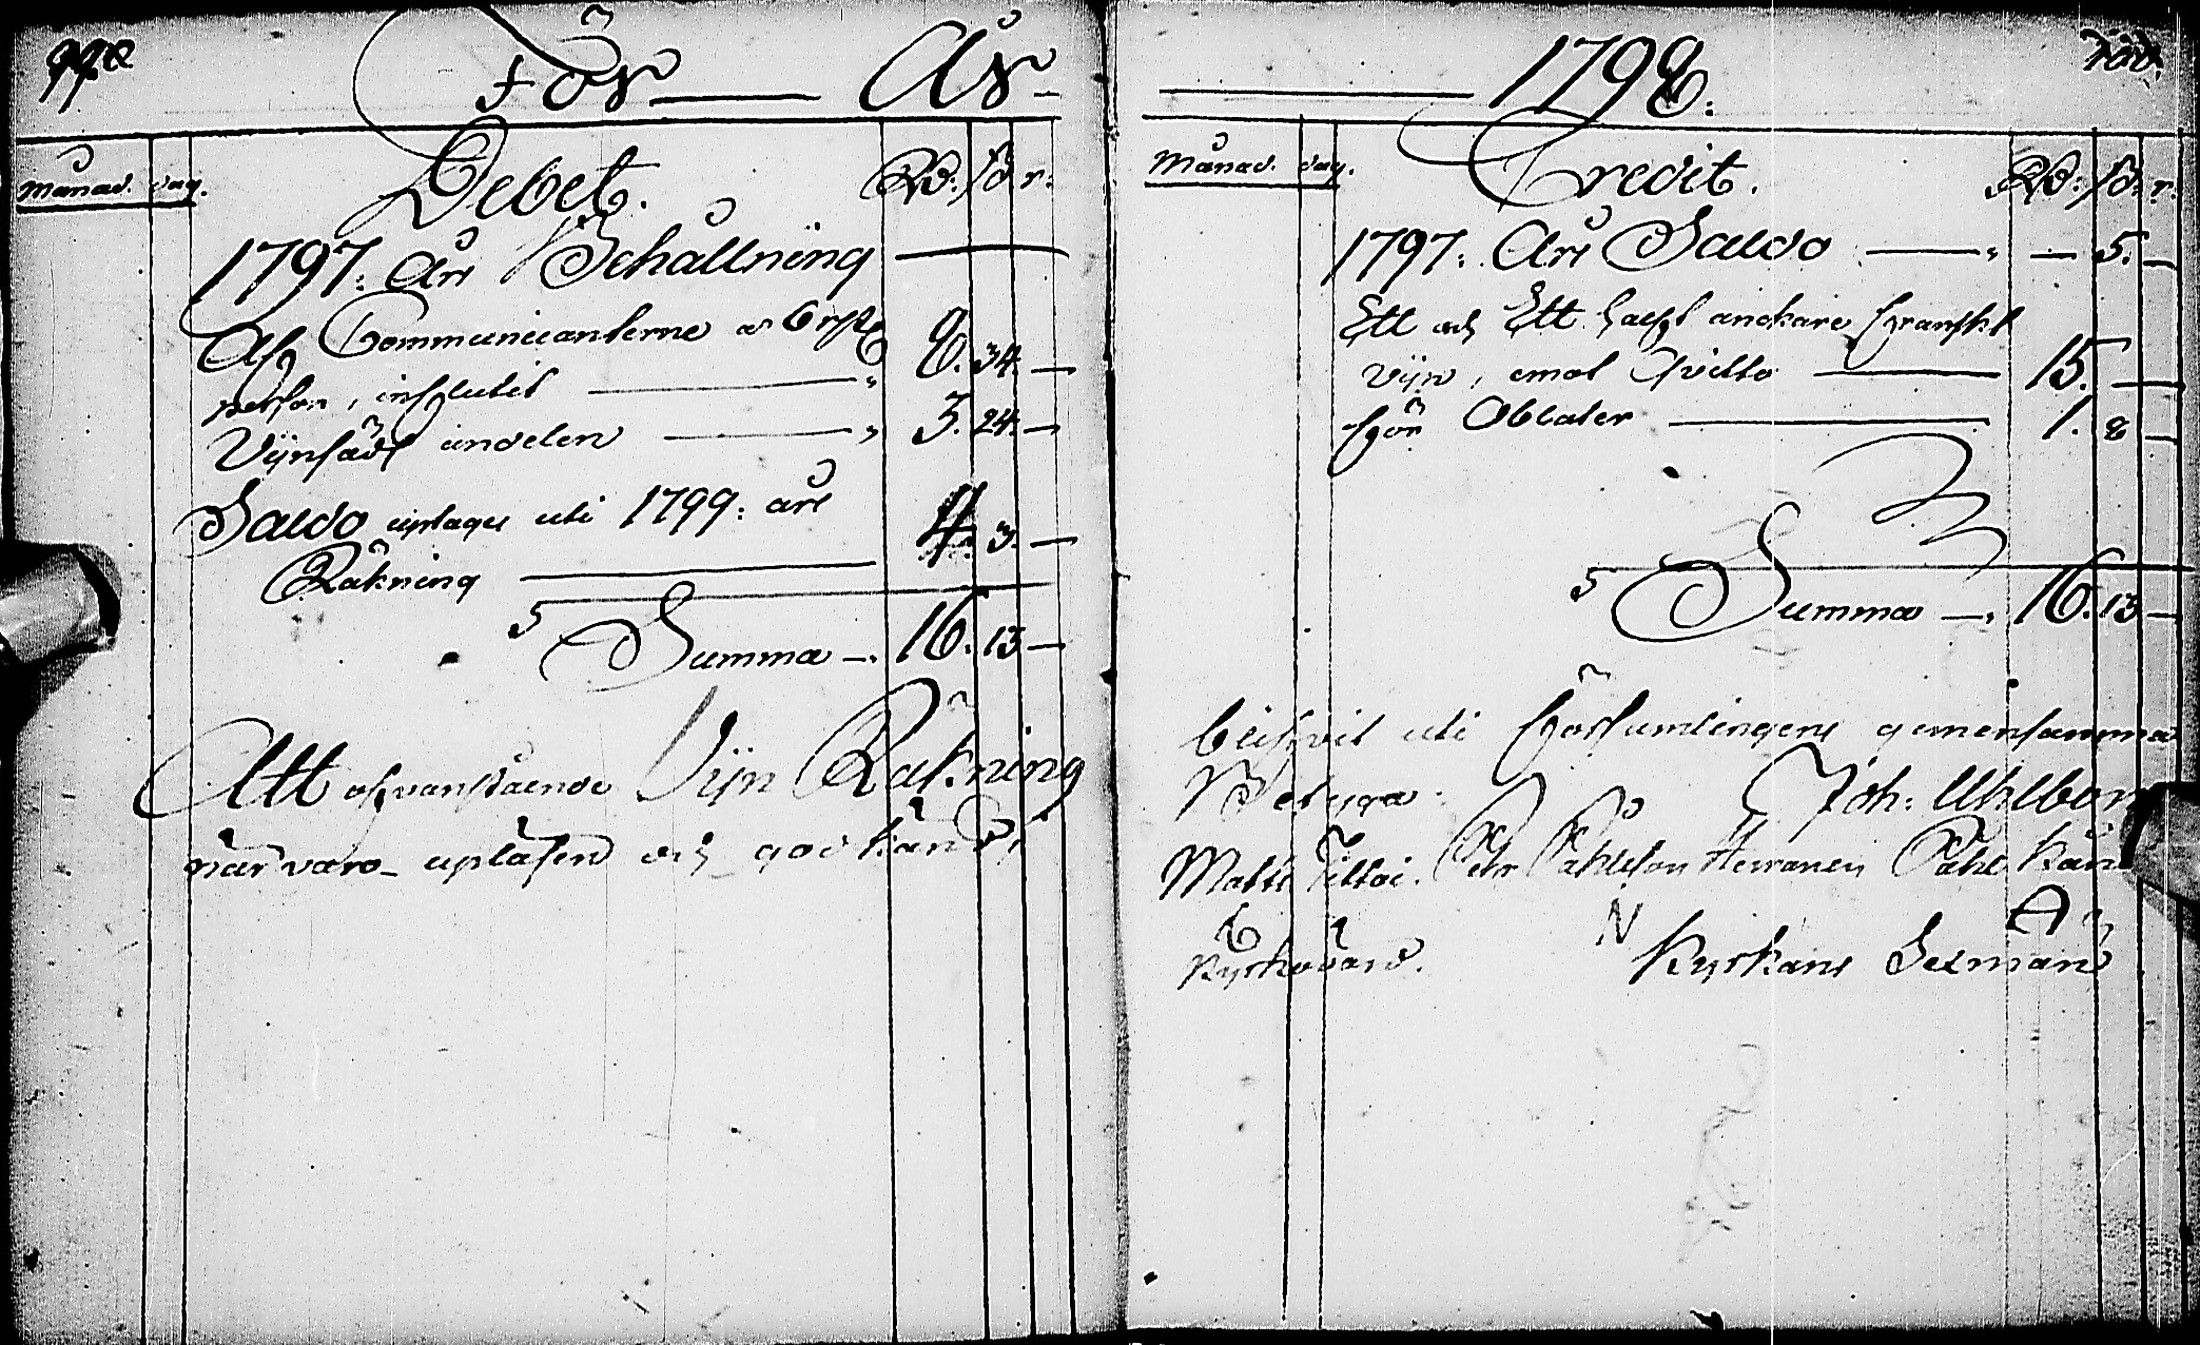 För År
Månad. dag. Debet. RD: ſd r:
1797: Års Behållning
Af Communicanterne a 6 rst
person, influtit 8. 34. —
Vijnsäds andelen 3. 24. —
Saldo uptages uti 1799: års 4. 3. —
Räkning
Summa 16. 13 —
Att ofvanstående Vijn Räkning
närvaro upläsen och godkänd,
1798.
Månad. dag. Credit. RD: ſd: r:
1797: Års Saldo — 5. —
Ett och Ett halft anckare Franskt
Vijn, emot Qvitto 15. —
För Oblater 1. 8 —
Summa 16. 13 —
blifvit uti Församlingens gemensamma
Betyga. Joh: Ahlbom
Matts Petr Påhlsson Herranen Påhl
Kyrkovärd. Kyrkans Sexmän